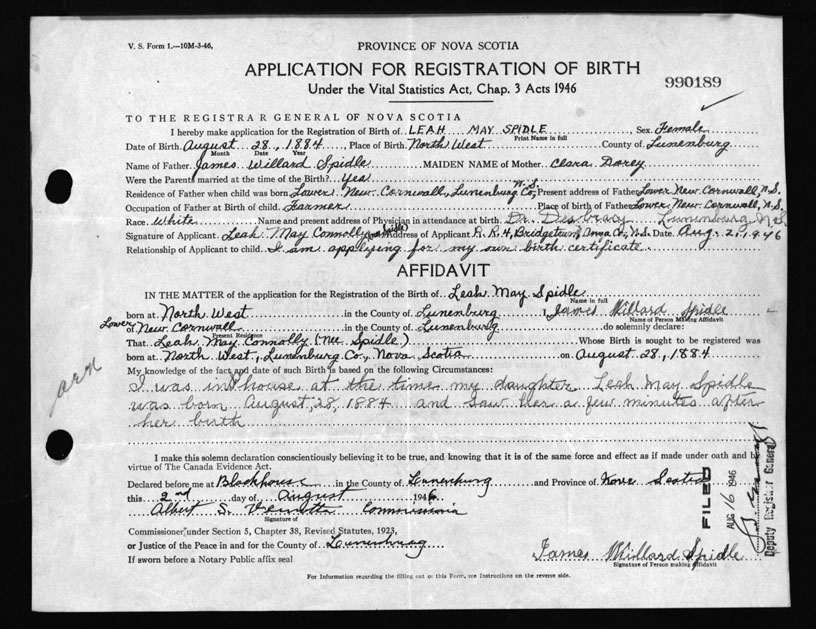 V. S. Form 1.—10M-3-46,
PROVINCE OF NOVA SCOTIA
APPLICATION FOR REGISTRATION OF BIRTH
990189
Under the Vital Statistics Act, Chap. 3 Acts 1946
TO THE REGISTRAR GENERAL OF NOVA SCOTIA
I hereby make application for the Registration of Birth of LEAH MAY SPIDLE, Sex Female
Print Name in full
Date of Birth August 28, 1884, Place of Birth North West County of Lunenburg
Month Date Year
Name of Father James Willard Spidle MAIDEN NAME of Mother Clara Dorey
Were the Parents married at the time of the Birth? Yes
Residence of Father when child was born Lower New Cornwall, Lunenburg Co, N.S. Present address of Father Lower New Cornwall, N.S.
Occupation of Father at Birth of child Farmer Place of birth of Father Lower New Cornwall, N.S.
Race White Name and present address of Physician in attendance at birth Dr. DesBrary Lunenburg N.S.
Signature of Applicant Leah May Connolly Address of Applicant R.R.4, Bridgetown Anna Co, N.S. Date Aug. 2, 1946
Relationship of Applicant to child I am applying for my own birth certificate
AFFIDAVIT
IN THE MATTER of the application for the Registration of the Birth of Leah May Spidle
Name in full
born at North West in the County of Lunenburg I, James Willard Spidle
Name of Person Making Affidavit
Lower
of New Cornwall in the County of Lunenburg do solemnly declare:
Present Residence
That Leah May Connolly (nee Spidle) Whose Birth is sought to be registered was
born at North West, Lunenburg Co., Nova Scotia on August 28, 1884
My knowledge of the fact and date of such Birth is based on the following Circumstances:
I was in house at the time my daughter Leah May Spidle
was born August, 28, 1884 and saw her a few minutes after
her birth
I make this solemn declaration conscientiously believing it to be true, and knowing that it is of the same force and effect as if made under oath and by
virtue of The Canada Evidence Act.
Declared before me at Blockhouse in the County of Lunenburg and Province of Nova Scotia
this 2nd day of August 1946
Albert S. Commissioner
Signature of
Commissioner under Section 5, Chapter 38, Revised Statutes, 1923,
or Justice of the Peace in and for the County of Lunenburg
James Willard Spidle
Signature of Person making Affidavit
If sworn before a Notary Public affix seal
For Information regarding the filling out of this Form, see Instructions on the reverse side.
FILED
AUG 16 1946
Deputy Registrar General